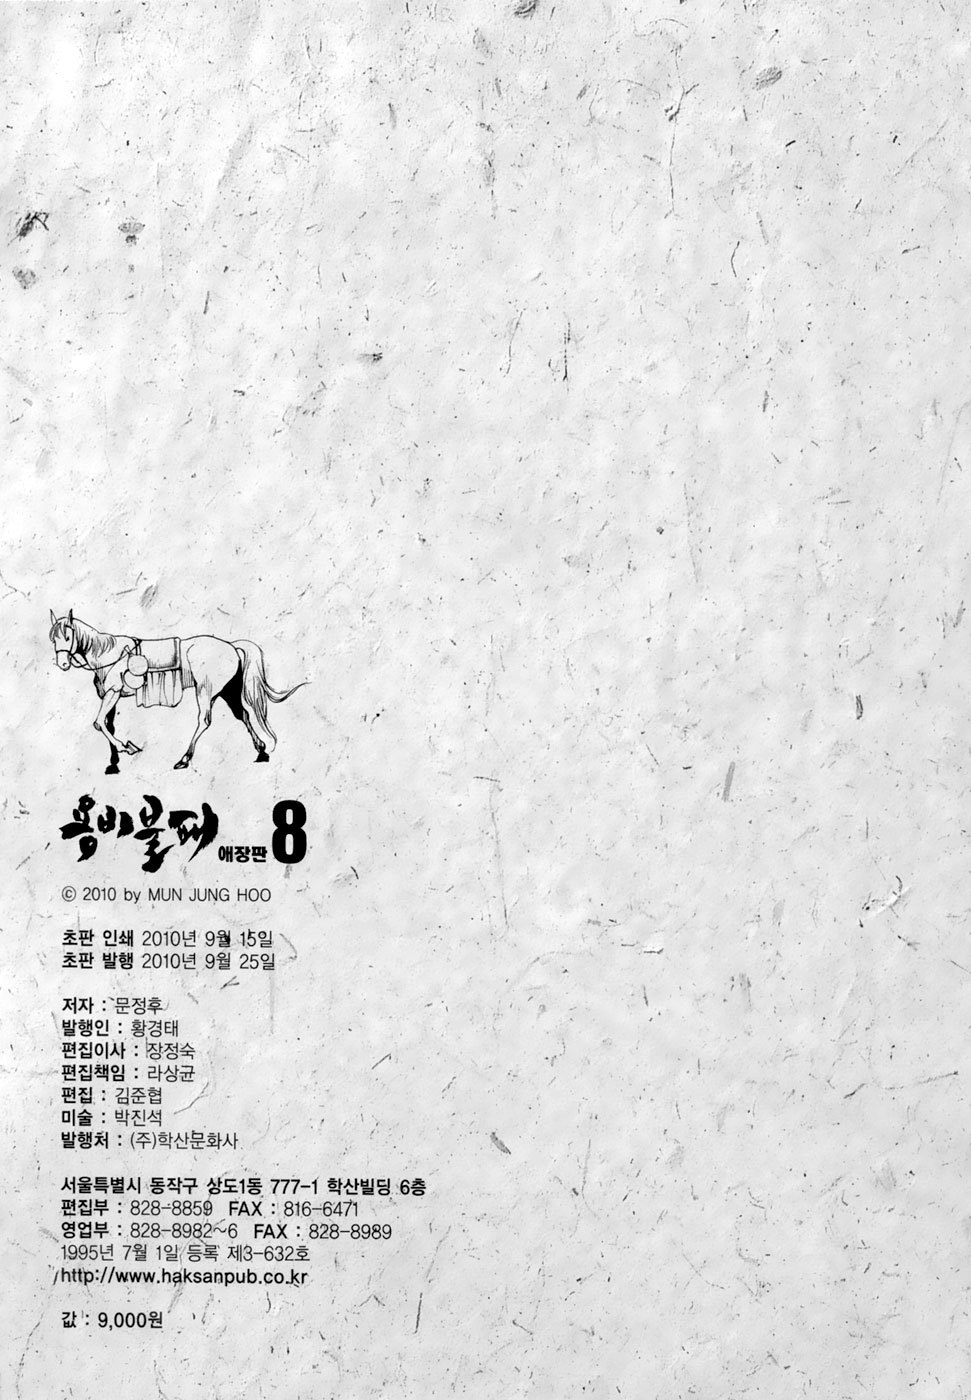 용비불패 애장판 8
© 2010 by MUN JUNG HOO
초판 인쇄 2010년 9월 15일
초판 발행 2010년 9월 25일
저자 : 문정후
발행인 : 황경태
편집이사 : 장정숙
편집책임 : 라상균
편집 : 김준협
미술 : 박진석
발행처 : (주)학산문화사
서울특별시 동작구 상도1동 777-1 학산빌딩 6층
편집부 : 828-8859 FAX : 816-6471
영업부 : 828-8982~6 FAX : 828-8989
1995년 7월 1일 등록 제3-632호
http://www.haksanpub.co.kr
값 : 9,000원